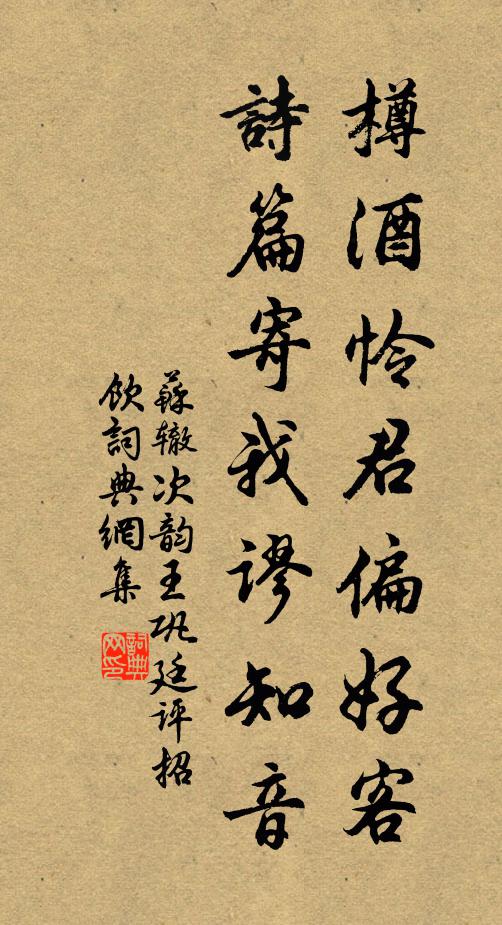 樽酒怜君偏好客
詩篇寄我謬知音
蘇辙次韵王巩廷评招
饮詞典網集
詞典网印